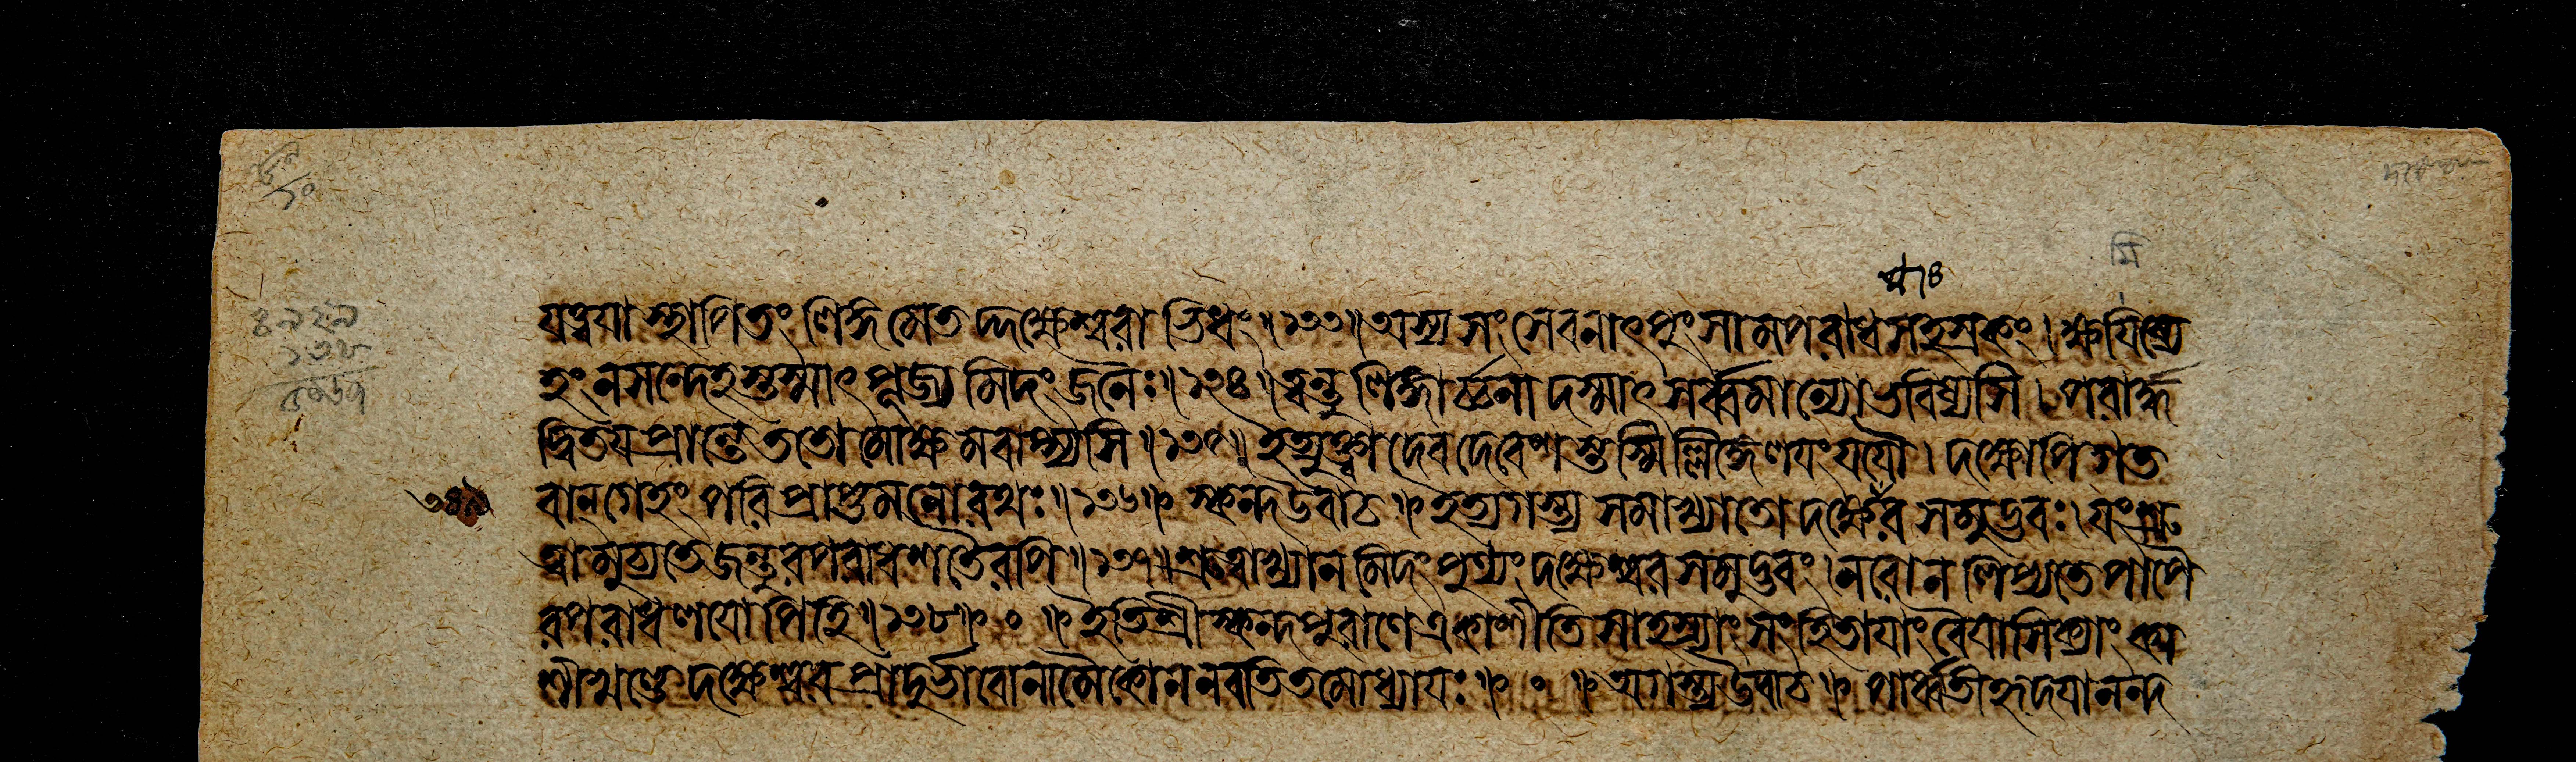 যত্ত্বযা স্থাপিতং লিঙ্গমেতদ্দক্ষেশ্বরাভিধং॥১৩৩॥অস্য সংসেবনাৎ পুংসামপরাধসহস্রকং।ক্ষযিষ্যে
হং ন সন্দেহস্তস্মাৎ পূজ্যমিদং জনৈঃ॥১৩৪॥ত্বন্তু লিঙ্গার্চ্চনাদস্মাৎ সর্ব্বমান্যো ভবিষ্যসি।পরার্দ্ধ
দ্বিতযপ্রান্তে ততো মোক্ষমবাপ্স্যসি॥১৩৫॥ইত্যুক্ত্বা দেবদেবেশস্তস্মিঁল্লিঙ্গে লযং যযৌ।দক্ষোপি গত
বান্ গেহং পরিপ্রাপ্তমনোরথঃ॥১৩৬॥স্কন্দ উবাচ॥ইত্যগস্ত্য সমাখ্যাতো দক্ষেশ্বর সমুদ্ভবঃ।যং শ্রু
ত্বা মুচ্যতে জন্তুরপরাধশতৈরপি॥১৩৭॥শ্রুত্বাখ্যানমিদং পুণ্যং দক্ষেশ্বরসমুদ্ভবং।নরো ন লিপ্যতে পাপৈ
রপরাধলযোপি হি॥১৩৮॥০॥ইতি শ্রীস্কন্দপুরাণে একাশীতি সাহস্র্যাং সংহিতাযাং বৈযাসিক্যাং কা
শীখণ্ডে দক্ষেশ্বর প্রাদুর্ভাবো নামৈকোননবতিতমোধ্যাযঃ॥০॥অগস্ত্য উবাচ॥পার্ব্বতীহৃদযানন্দ